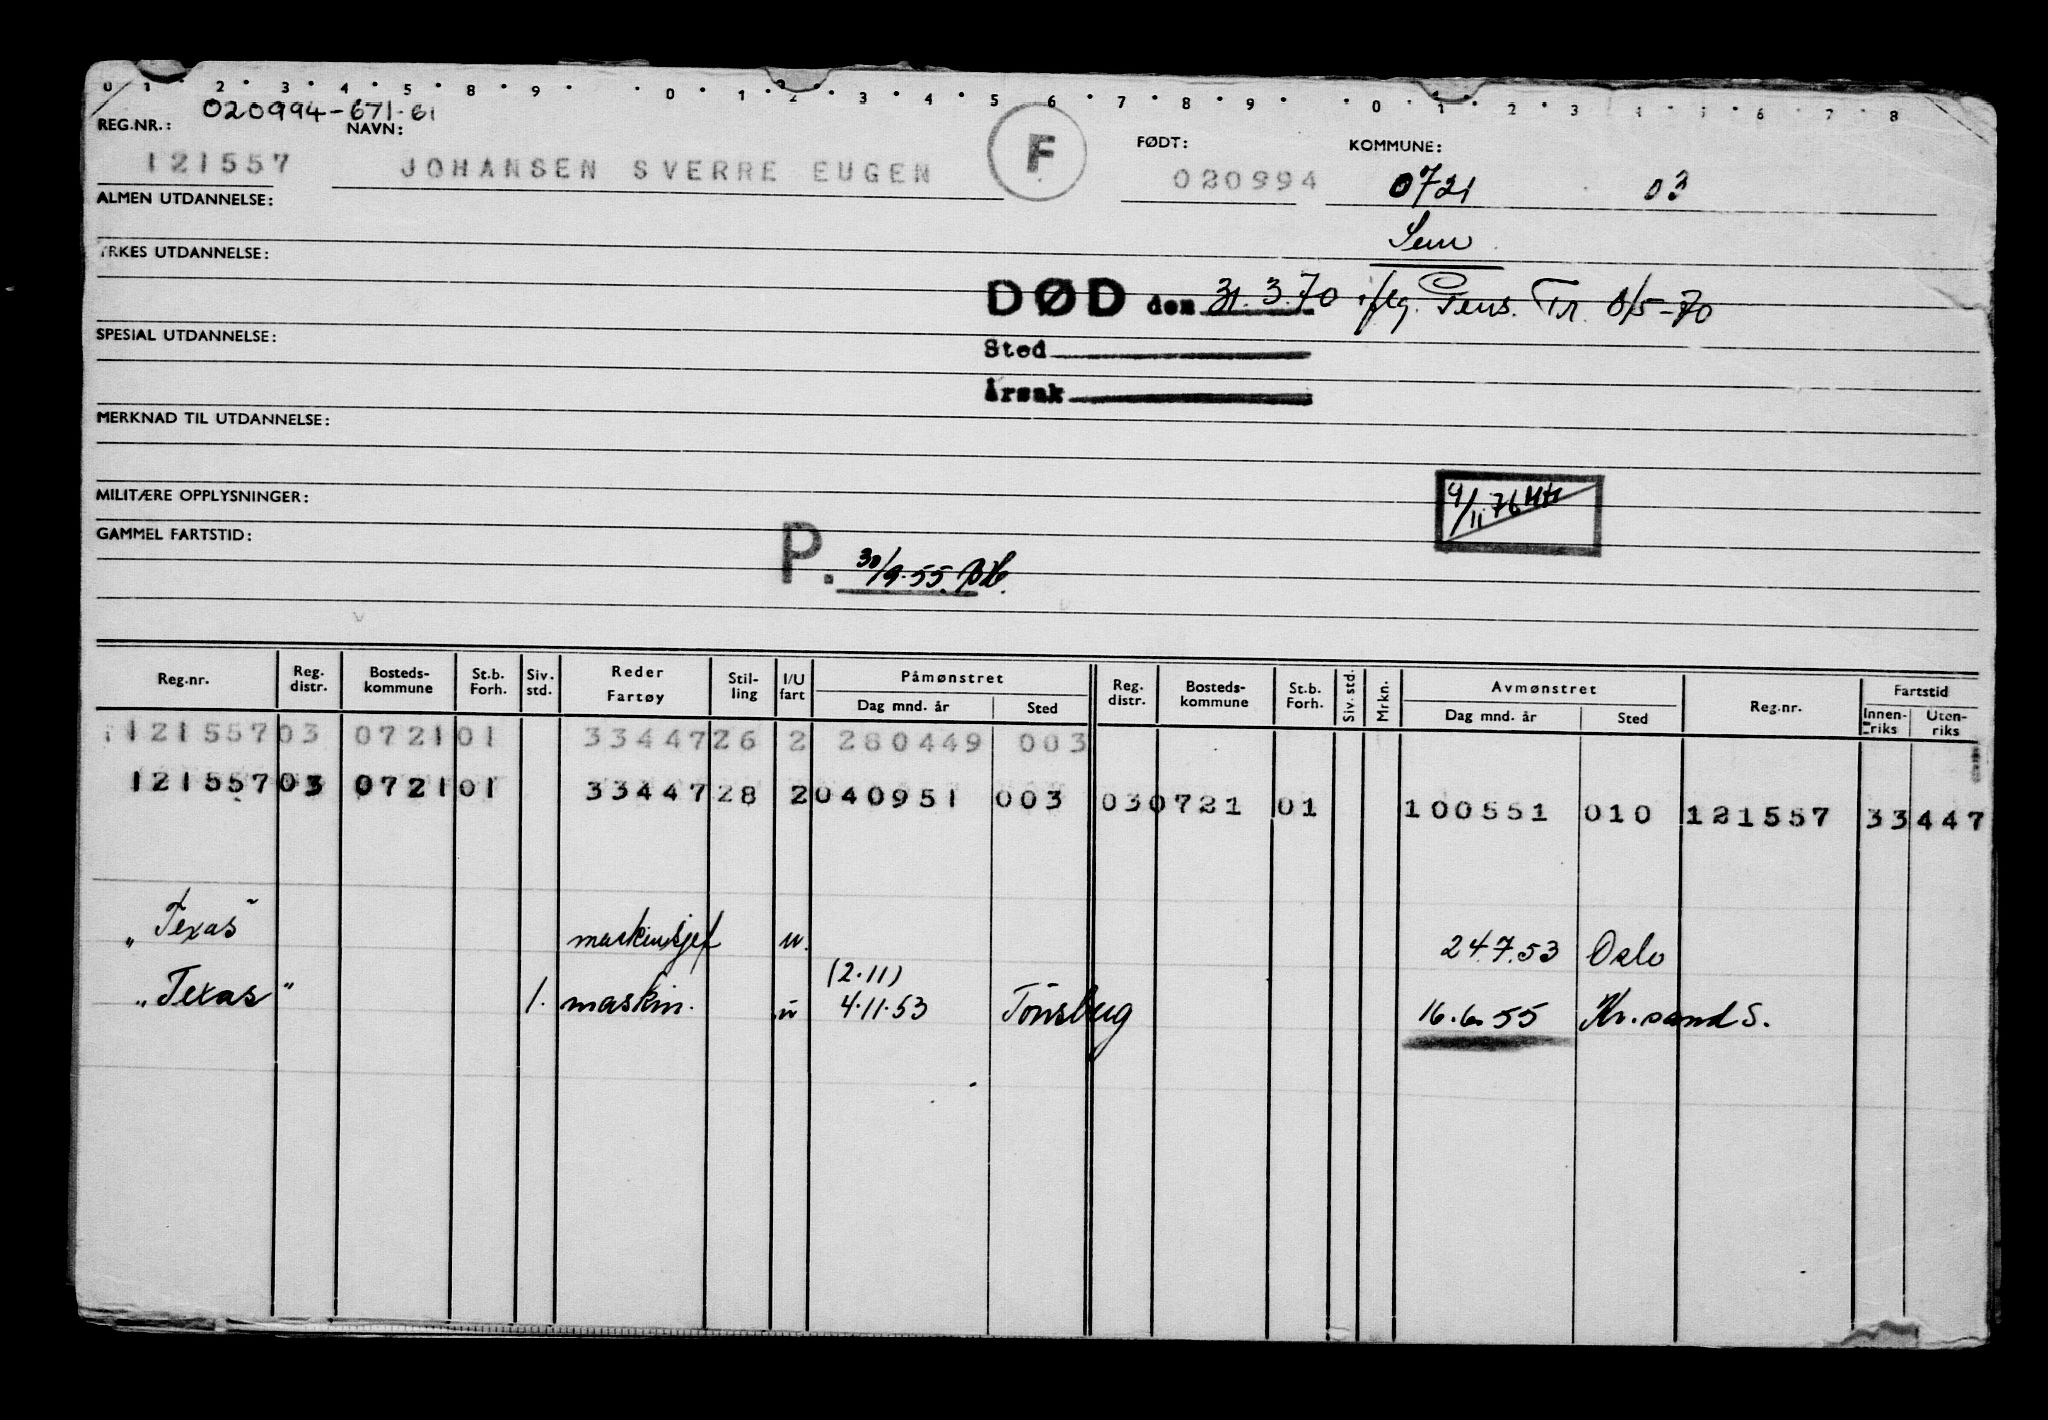 0 1 2 3 4 5 8 9 0 1 2 3 4 5 6 7 8 9 0 1 2 3 4 5 6 7 8
020994-671.61
REG.NR.: NAVN: FØDT: KOMMUNE:
121557 JOHANSEN SVERRE EUGEN F 020994 0721 03
ALMEN UTDANNELSE:
Sem
YRKES UTDANNELSE:
DØD den 31.3.70 iflg. Pens. Tr. 8/5-70
SPESIAL UTDANNELSE:
Sted
Årsak
MERKNAD TIL UTDANNELSE:
MILITÆRE OPPLYSNINGER:
9/11 76
GAMMEL FARTSTID:
P. 30/9.55
Reg.nr. Reg. distr. Bosteds-kommune St.b. Forh. Siv. std. Reder Fartøy Stil-ling I/U fart Påmønstret Dag mnd. år Sted Reg. distr. Bosteds-kommune St.b. Forh. Siv. std. Mrkn. Avmønstret Dag mnd. år Sted Reg.nr. Fartstid Innen-riks Uten-riks
121557 03 0721 01 33447 26 2 280449 003
121557 03 0721 01 33447 28 2 040951 003 03 0721 01 100551 010 121557 33447
"Texas" maskinsjef u. 24.7.53 Oslo
(2.11)
"Texas" 1. maskin. u 4.11.53 Tönsberg 16.6.55 Kr.sand S.